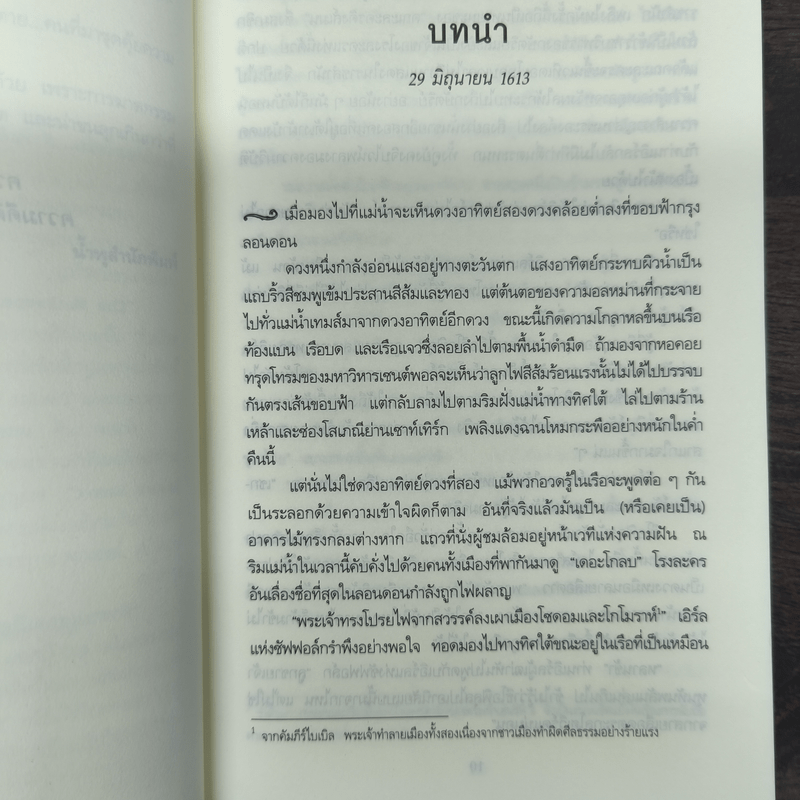 บทนำ
29 มิถุนายน 1613
เมื่อมองไปที่แม่น้ำจะเห็นดวงอาทิตย์สองดวงคล้อยต่ำลงที่ขอบฟ้ากรุง
ลอนดอน
ดวงหนึ่งกำลังอ่อนแสงอยู่ทางตะวันตก แสงอาทิตย์กระทบผิวน้ำเป็น
แถบริ้วสีชมพูเข้มประสานสีส้มและทอง แต่ต้นตอของความอลหม่านที่กระจาย
ไปทั่วแม่น้ำเทมส์มาจากดวงอาทิตย์อีกดวง ขณะนี้เกิดความโกลาหลขึ้นบนเรือ
ท้องแบน เรือบด และเรือแจวซึ่งลอยลำไปตามพื้นน้ำดำมืด ถ้ามองจากหอคอย
ทรุดโทรมของมหาวิหารเซนต์พอลจะเห็นว่าลูกไฟสีส้มร้อนแรงนั้นไม่ได้ไปบรรจบ
กันตรงเส้นขอบฟ้า แต่กลับลามไปตามริมฝั่งแม่น้ำทางทิศใต้ ไล่ไปตามร้าน
เหล้าและซ่องโสเภณีย่านเซาท์เทิร์ก เพลิงแดงฉานโหมกระพืออย่างหนักในค่ำ
คืนนี้
แต่นั่นไม่ใช่ดวงอาทิตย์ดวงที่สอง แม้พวกอวดรู้ในเรือจะพูดต่อ ๆ กัน
เป็นระลอกด้วยความเข้าใจผิดก็ตาม อันที่จริงแล้วมันเป็น (หรือเคยเป็น)
อาคารไม้ทรงกลมต่างหาก แถวที่นั่งผู้ชมล้อมอยู่หน้าเวทีแห่งความฝัน ณ
ริมแม่น้ำในเวลานี้คับคั่งไปด้วยคนทั้งเมืองที่พากันมาดู “เดอะโกลบ” โรงละคร
อันเลื่องชื่อที่สุดในลอนดอนกำลังถูกไฟผลาญ
“พระเจ้าทรงโปรยไฟจากสวรรค์ลงเผาเมืองโซดอมและโกโมราห์¹” เอิร์ล
แห่งซัฟฟอล์กรำพึงอย่างพอใจ ทอดมองไปทางทิศใต้ขณะอยู่ในเรือที่เป็นเหมือน
¹ จากคัมภีร์ไบเบิล พระเจ้าทำลายเมืองทั้งสองเนื่องจากชาวเมืองทำผิดศีลธรรมอย่างร้ายแรง